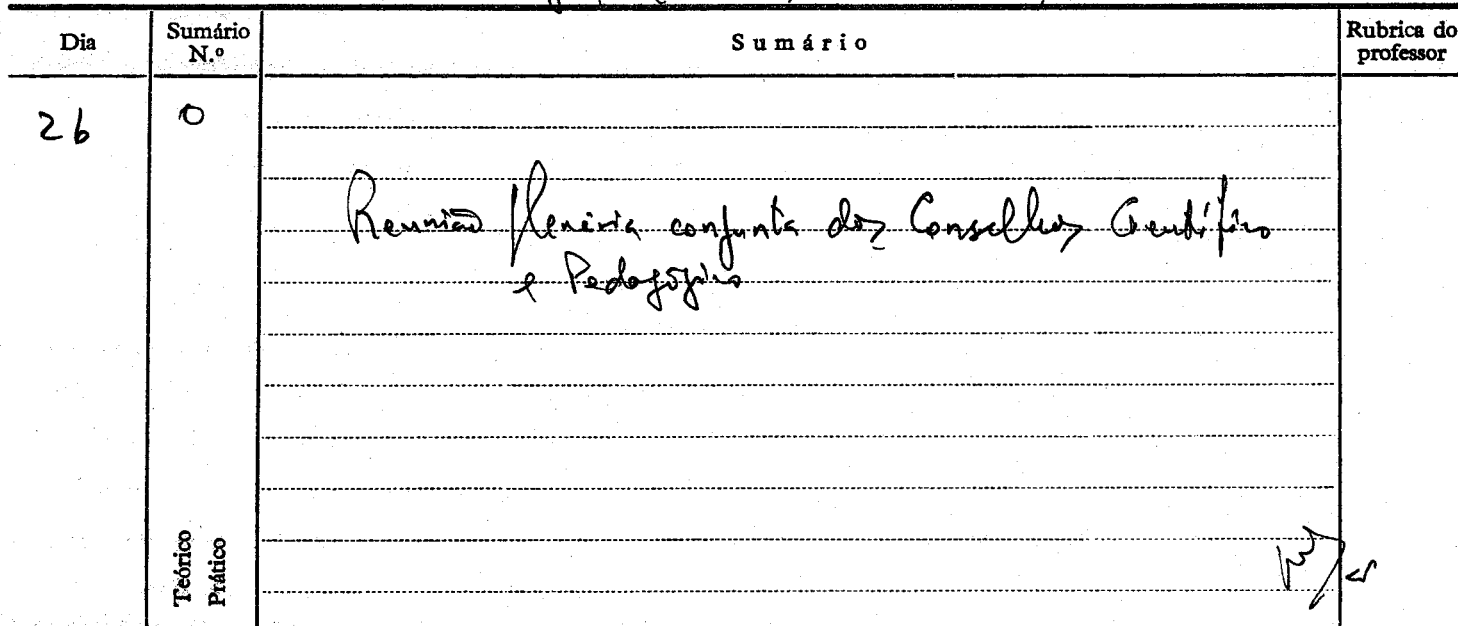 Dia
Sumário N.º
Sumário
Rubrica do professor
26
0
Reunião Plenária conjunta dos Conselhos Científico
e Pedagógico
Teórico
Prático